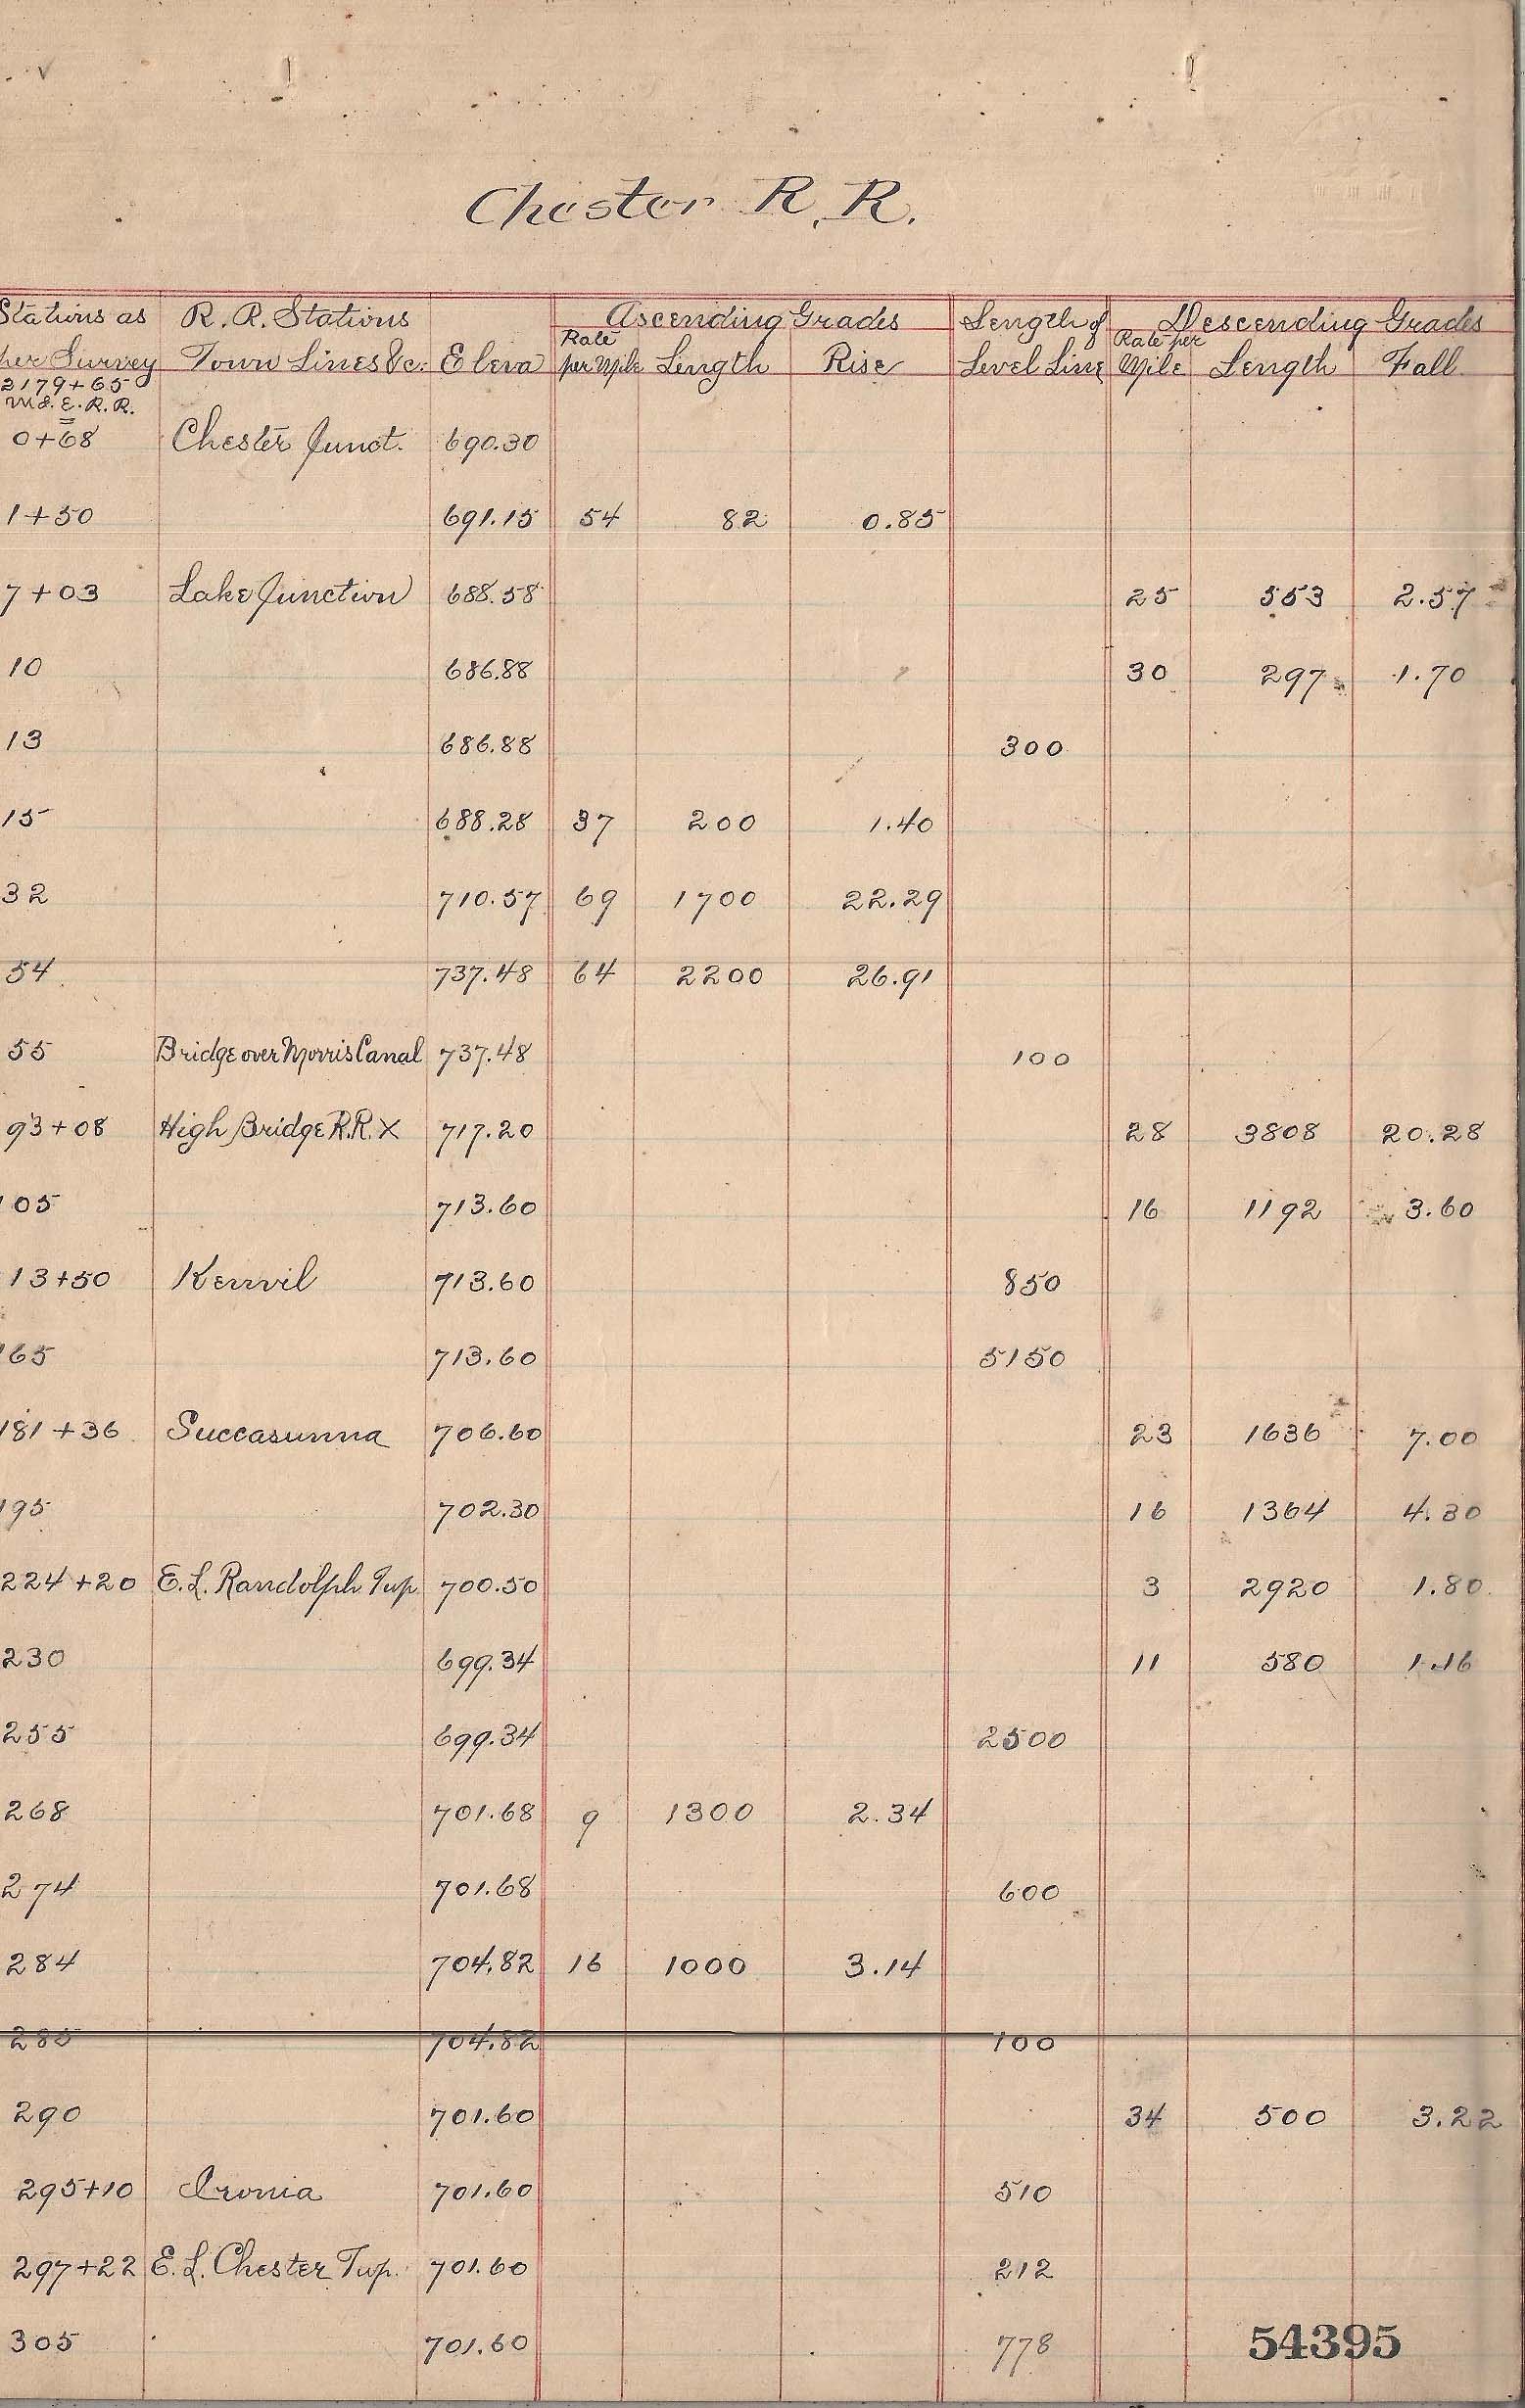 Chester R. R.
Stations as R. R. Stations Ascending Grades Length of Descending Grades
per Survey Town Lines &c. Eleva Rate per Mile Length Rise Level Line Rate per Mile Length Fall
2179+65
M. & E. R. R.
=
0+68 Chester Junct. 690.30
1+50 691.15 54 82 0.85
7+03 Lake Junction 688.58 25 553 2.57
10 686.88 30 297 1.70
13 686.88 300
15 688.28 37 200 1.40
32 710.57 69 1700 22.29
54 737.48 64 2200 26.91
55 Bridge over Morris Canal 737.48 100
93+08 High Bridge R.R. X 717.20 28 3808 20.28
105 713.60 16 1192 3.60
13+50 Kenvil 713.60 850
165 713.60 5150
181+36 Succasunna 706.60 23 1636 7.00
195 702.30 16 1364 4.30
224+20 E. L. Randolph Twp. 700.50 3 2920 1.80
230 699.34 11 580 1.16
255 699.34 2500
268 701.68 9 1300 2.34
274 701.68 600
284 704.82 16 1000 3.14
285 704.82 100
290 701.60 34 500 3.22
295+10 Ironia 701.60 510
297+22 E. L. Chester Twp. 701.60 212
305 701.60 778
54395